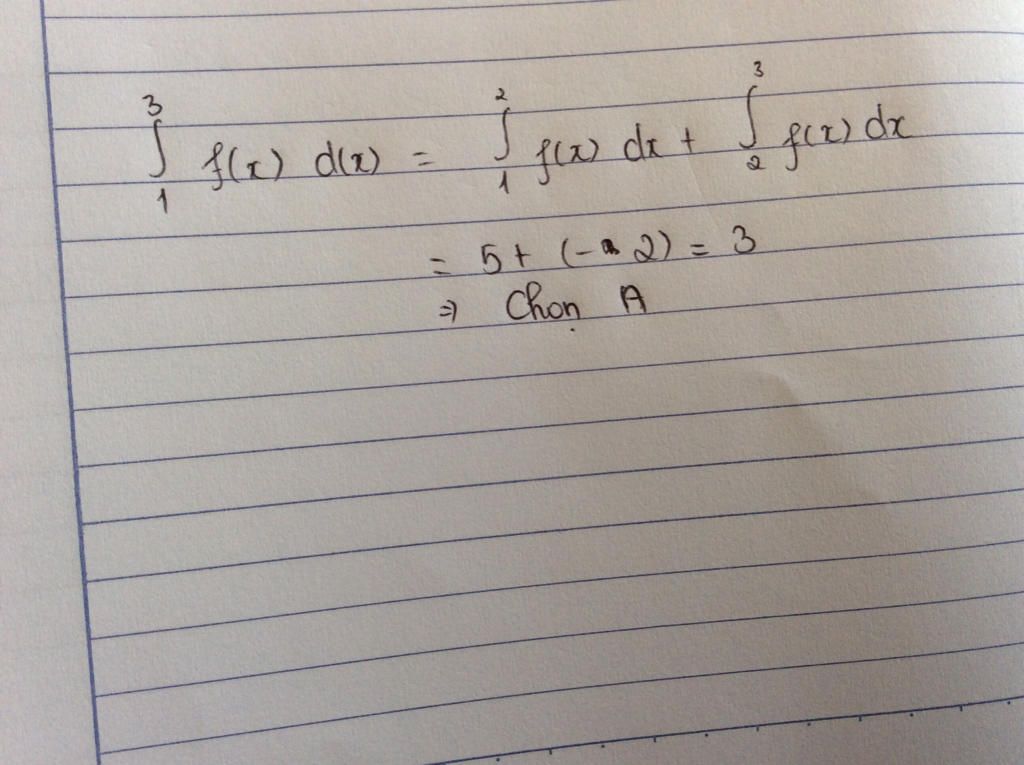 ∫₁³ f(x) d(x) = ∫₁² f(x) dx + ∫₂³ f(x) dx
= 5 + (- 2) = 3
⇒ Chọn A